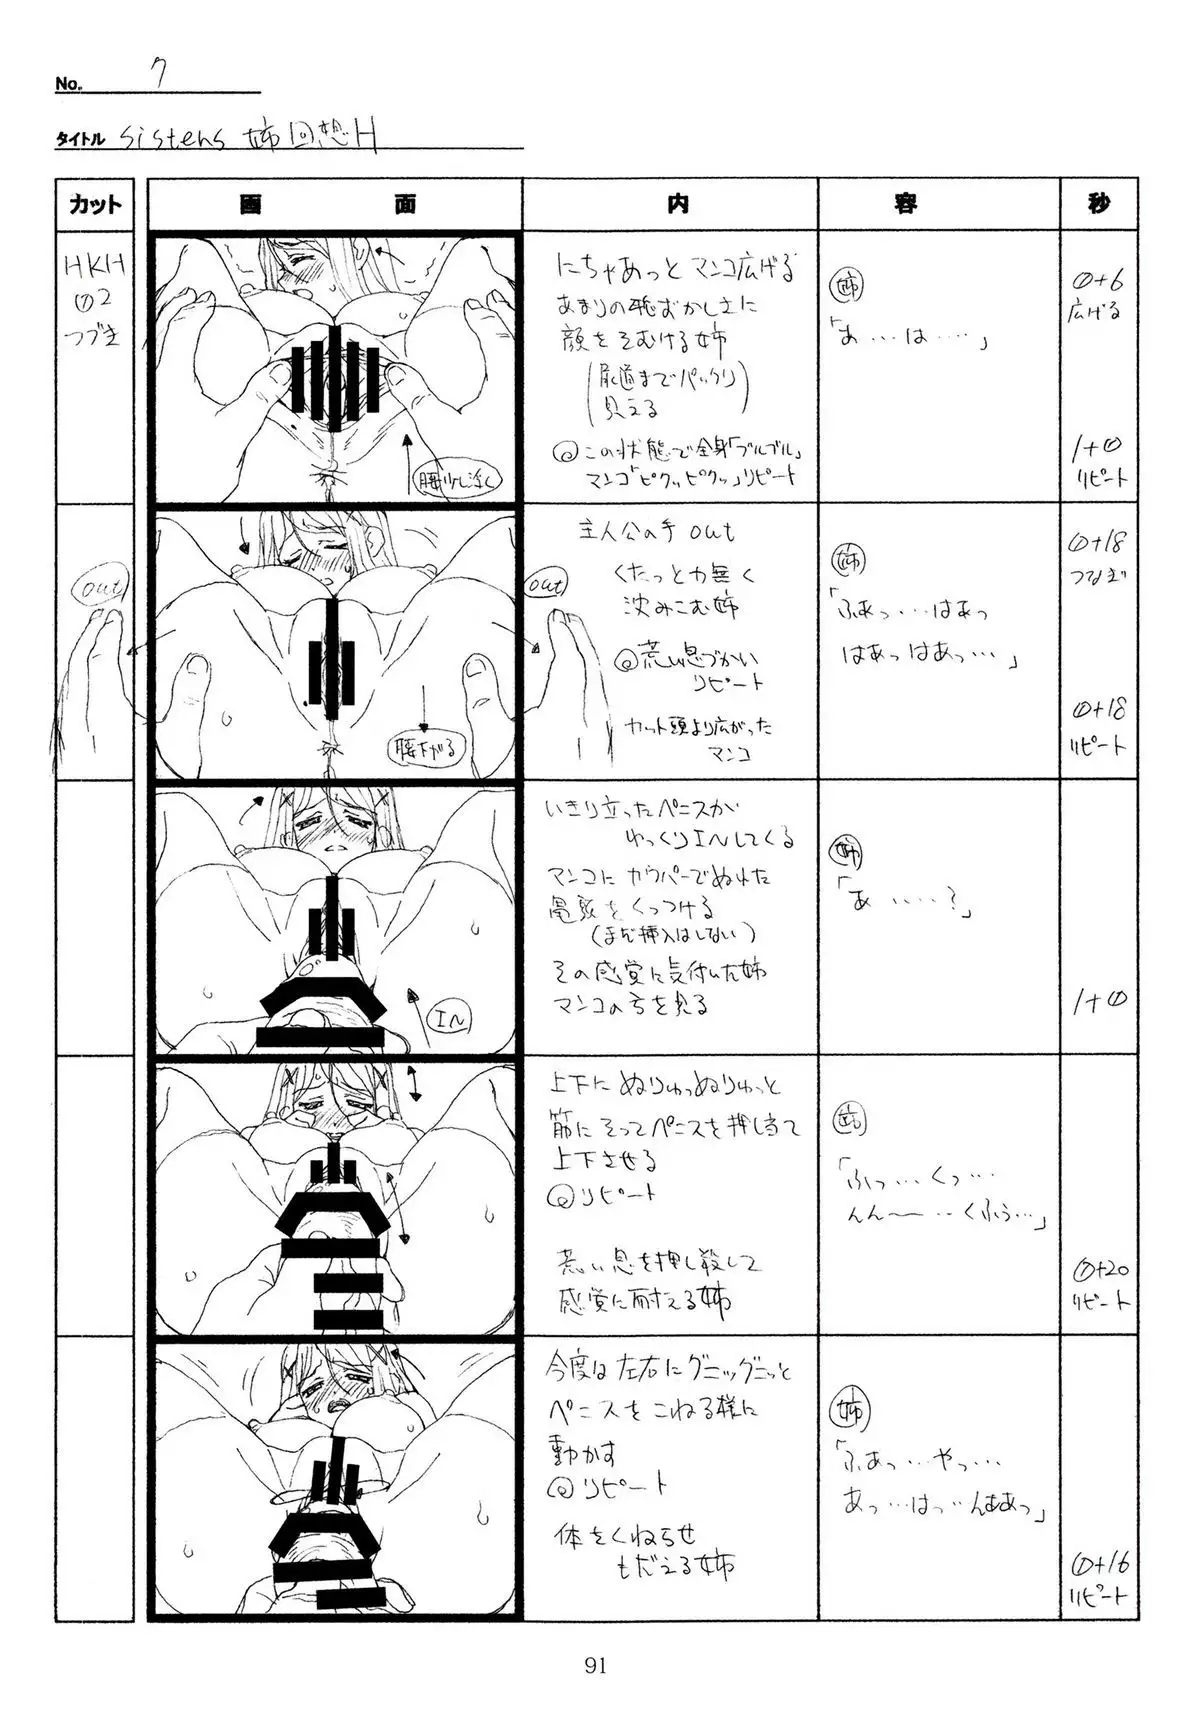 No. 7
タイトル sisters 姉回想H
カット 画面 内容 秒
HKH
①2
つづき
腰少し浮く
にちゃあっとマンコ広げる
あまりの恥ずかしさに
顔をそむける姉
(尿道までパックリ
見える)
◎この状態で全身「ブルブル」
マンコ「ピクッピクッ」リピート
姉
「あ…は‥‥」
0+6
広げる
1+0
リピート
out
腰下がる
out
主人公の手 out
くたっと力無く
沈みこむ姉
◎荒い息づかい
リピート
カット頭より広がった
マンコ
姉
「ふあっ…はあっ
はあっはあっ…」
0+18
つなぎ
0+18
リピート
IN
いきり立ったペニスが
ゆっくりINしてくる
マンコにカウパーでぬれた
亀頭をくっつける
(まだ挿入はしない)
その感覚に気付いた姉
マンコの方を見る
姉
「あ‥‥?」
1+0
上下にぬりゅっぬりゅっと
筋にそってペニスを押し当て
上下させる
◎リピート
荒い息を押し殺して
感覚に耐える姉
「ふっ…くっ…
んん〜‥くふぅ…」
0+20
リピート
今度は左右にグニッグニッと
ペニスをこねる様に
動かす
◎リピート
体をくねらせ
もだえる姉
姉
「ふあっ…やっ…
あっ…はっ‥んああっ」
0+16
リピート
91